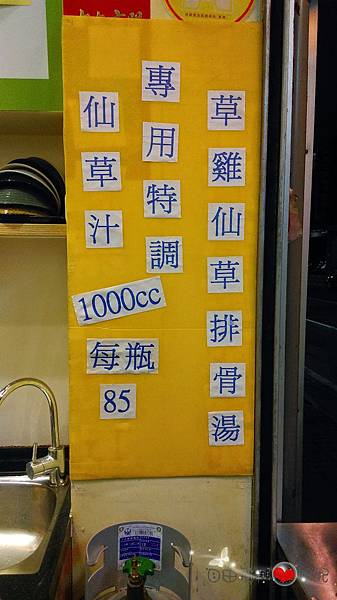 草雞仙草排骨湯
專用特調
仙草汁
1000cc
每瓶
85